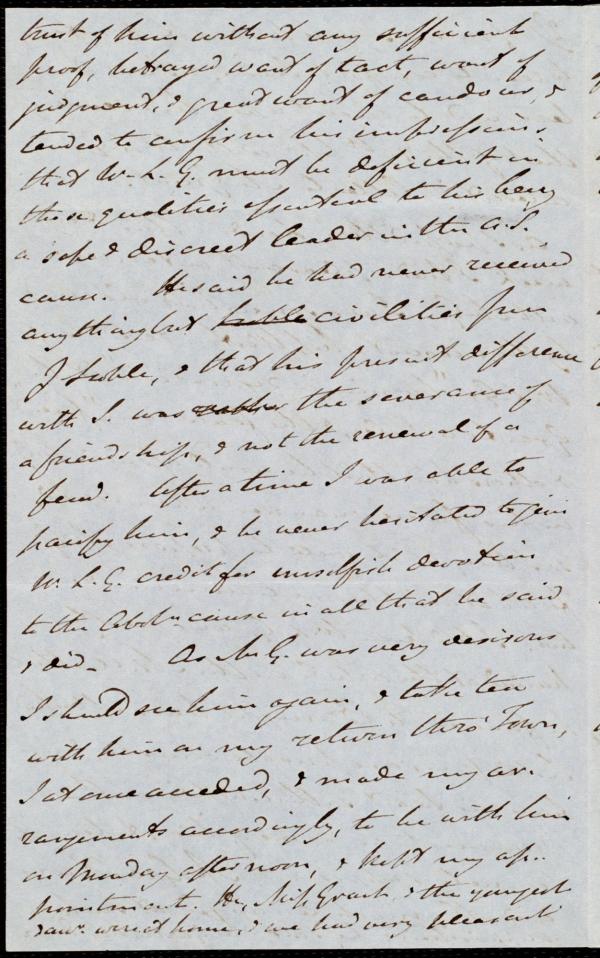 trust of him without any sufficient
proof, betrayed want of tact, want of
judgment, & great want of candour, &
tended to confirm his impression,
that W. L. G. must be deficient in
those qualities essential to his being
a safe & discreet leader in the A.S.
cause. He said he had never received
anything but civilities from
J Scoble, & that his present difference
with S. was rather the severance of
a friendship, & not the renewal of a
feud. After a time I was able to
pacify him, & he never hesitated to give
W. L. G. credit for unselfish devotion
to the Abolⁿ cause in all that he said
& did. As Mr G. was very desirous
I should see him again, & take tea
with him on my return thro' Town,
I at once acceded, & made my ar-
rangements accordingly, to be with him
on Monday afternoon, & kept my ap-
pointment. He, Miss & the youngest
daur. were at home, & we had very pleasant